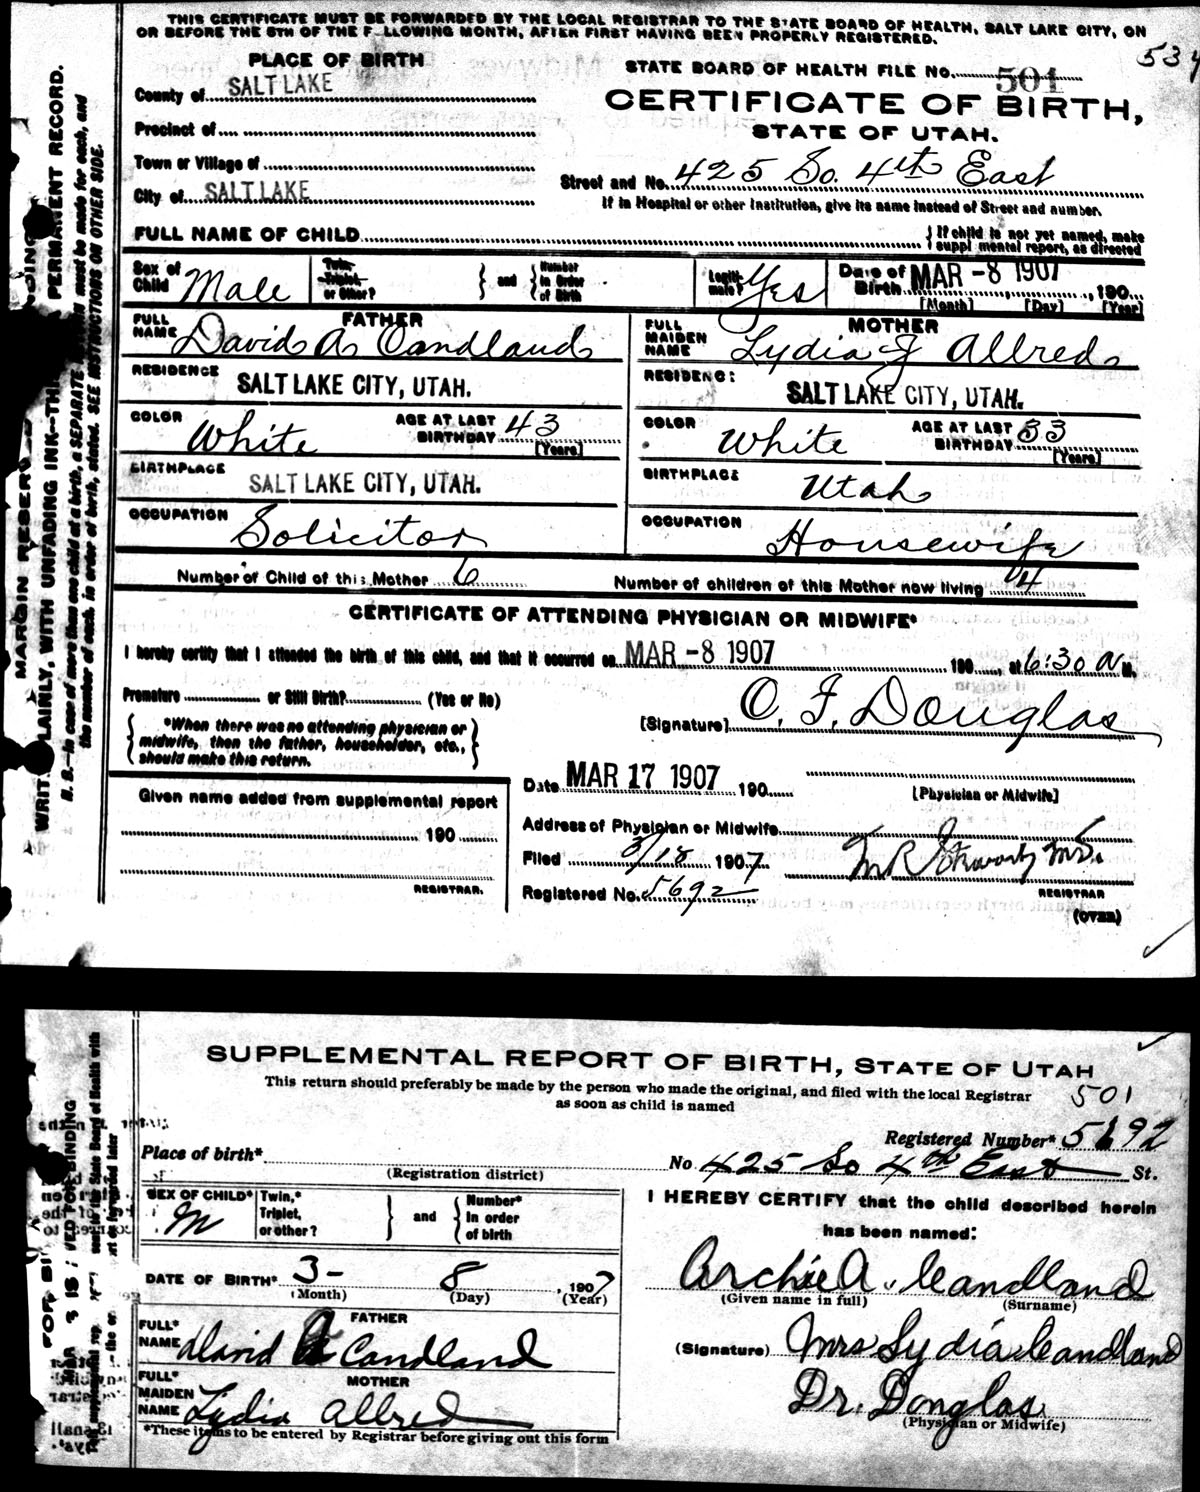 THIS CERTIFICATE MUST BE FORWARDED BY THE LOCAL REGISTRAR TO THE STATE BOARD OF HEALTH, SALT LAKE CITY, ON
OR BEFORE THE 5TH OF THE F LLOWING MONTH, AFTER FIRST HAVING BEEN PROPERLY REGISTERED.
534
PLACE OF BIRTH
County of SALT LAKE
Precinct of
Town or Village of
City of SALT LAKE
STATE BOARD OF HEALTH FILE No. 501
CERTIFICATE OF BIRTH,
STATE OF UTAH.
Street and No. 425 So. 4th East
If in Hospital or other Institution, give its name instead of Street and number.
FULL NAME OF CHILD
If child is not yet named, make
suppl mental report, as directed
Sex of Child Male
Twin, Triplet, or Other?
and
Number in Order of Birth
Legiti-mate? Yes
Date of Birth MAR -8 1907 , 190
[Month] [Day] [Year]
FATHER
FULL NAME David A. Candland
RESIDENCE SALT LAKE CITY, UTAH.
COLOR White
AGE AT LAST BIRTHDAY 43
[Years]
BIRTHPLACE SALT LAKE CITY, UTAH.
OCCUPATION Solicitor
MOTHER
FULL MAIDEN NAME Lydia J Allred
RESIDENC: SALT LAKE CITY, UTAH.
COLOR White
AGE AT LAST BIRTHDAY 33
[Years]
BIRTHPLACE Utah
OCCUPATION Housewife
Number of Child of this Mother 6
Number of children of this Mother now living 4
CERTIFICATE OF ATTENDING PHYSICIAN OR MIDWIFE*
I hereby certify that I attended the birth of this child, and that it occurred on MAR -8 1907 190 , at 6:30 A M.
Premature or Still Birth? (Yes or No)
*When there was no attending physician or
midwife, then the father, householder, etc.,
should make this return.
[Signature] O. F. Douglas
Date MAR 17 1907 190
[Physician or Midwife]
Given name added from supplemental report
190
REGISTRAR.
Address of Physician or Midwife
Filed 3/18 1907
Registered No. 5692
REGISTRAR
(OVER)
MARGIN RESER
WRIT LAINLY, WITH UNFADING INK—THI PERMANENT RECORD.
N. B.—In case of more than one child at a birth, a SEPARATE must be made for each, and
the number of each, in order of birth, stated. SEE INSTRUCTIONS ON OTHER SIDE.
SUPPLEMENTAL REPORT OF BIRTH, STATE OF UTAH
This return should preferably be made by the person who made the original, and filed with the local Registrar
as soon as child is named
501
Registered Number* 5692
Place of birth*
(Registration district)
No 425 So 4th East St.
SEX OF CHILD* M
Twin,* Triplet, or other?
and
Number* In order of birth
DATE OF BIRTH* 3- 8 , 1907
(Month) (Day) (Year)
FATHER
FULL* NAME David A Candland
MOTHER
FULL* MAIDEN NAME Lydia Allred
*These items to be entered by Registrar before giving out this form
I HEREBY CERTIFY that the child described herein
has been named:
Archie A. Candland
(Given name in full) (Surname)
(Signature) Mrs Lydia Candland
Dr. Douglas
(Physician or Midwife)